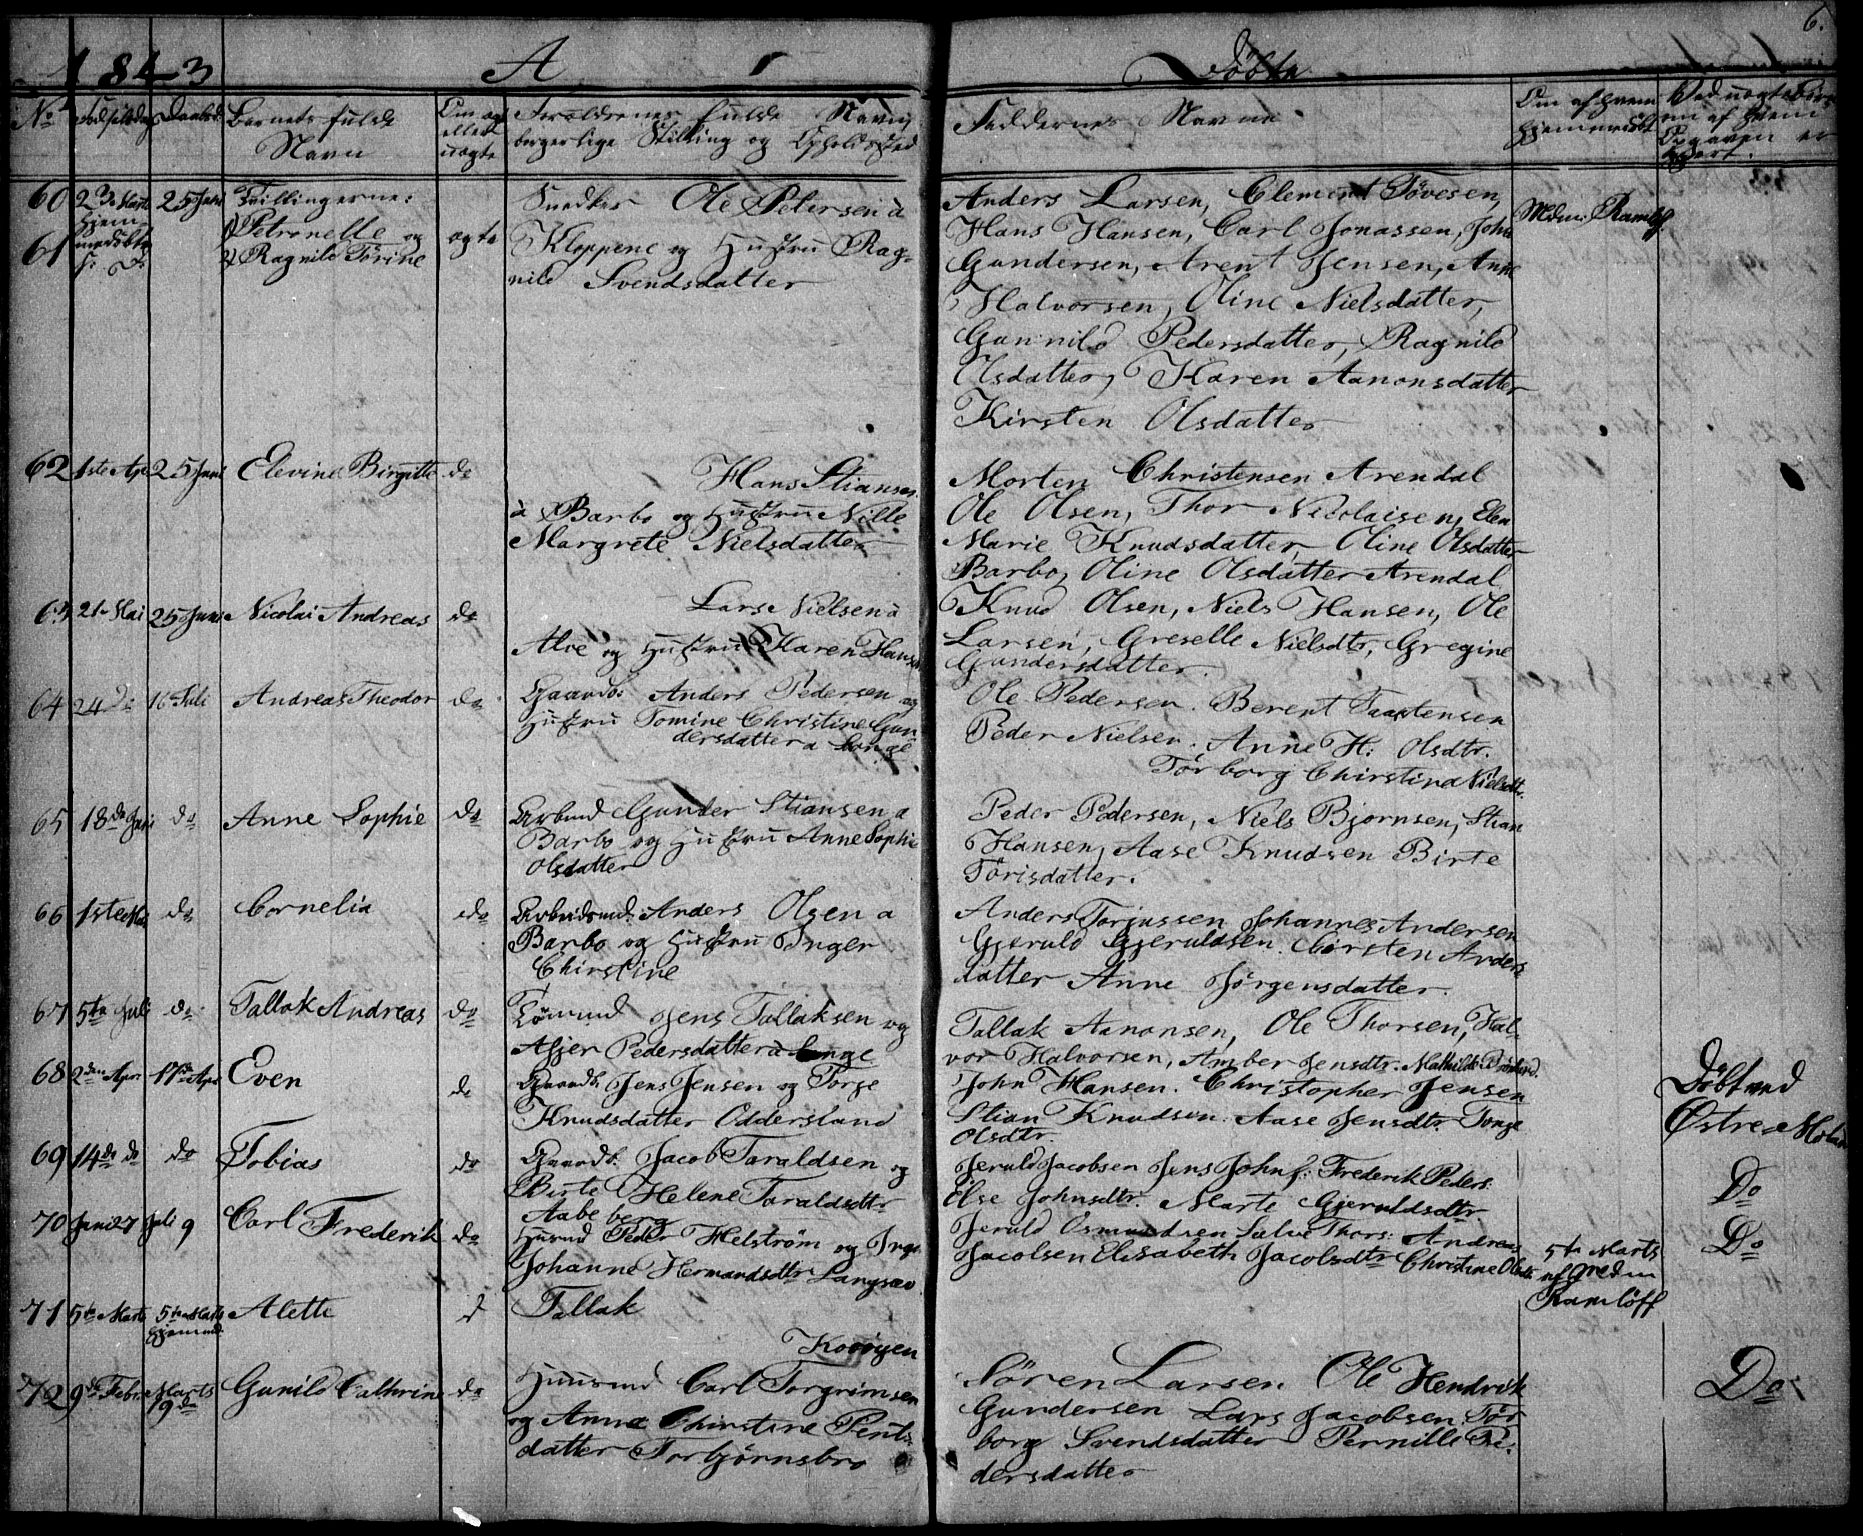 1843 A Döbte 6.
No Födselsdag Daabsd. Barnets fulde Navn Om ægte eller uægte Forældrenes fulde Navn, borgerlige Stilling og Opholdssted
Faddernes Navne Om af hvem hjemmedöbt
60 23de Marts 25 Juni Tvillingerne:
hjemmedöbte
61 1) Petronelle og
2) Ragnild Torine
ægte
Snedker Ole Petersen à
Kloppene og Hustru Rag-
nild Svendsdatter
Anders Larsen, Clement Tövesen,
Hans Hansen, Carl Jonassen, John
Gundersen, Arent Jensen, Anne
Halvorsen, Oline Nielsdatter,
Gunnild Pedersdatter, Ragnild
Olsdatter, Karen Aanonsdatter
Kirsten Olsdatter
Ramlöff
62 1ste Apr 25 Juni Elevine Birgitte do
Hans Stiansen
à Barbo og Hustru Nille
Margrete Nielsdatter
Morten Christensen Arendal
Ole Olsen, Thor Nicolaisen, Elen
Marie Knudsdatter, Oline Olsdatter
Barbo, Oline Olsdatter Arendal
63 21 Mai 25 Juni Nicolai Andreas do
Lars Nielsen à
Alve og Hustru Karen Hansd
Knud Olsen, Niels Hansen, Ole
Larsen, Greselle Nielsdtr, Gregine
Gundersdatter
64 24 Do 16 Juli Andreas Theodor do
Gaardb: Anders Pedersen og
Hustru Tomine Christine Gun-
dersdatter a Longe
Ole Pedersen. Berent Taartensen
Peder Nielsen. Anne H: Olsdtr.
Torborg Chirstina Nielsdtr.
65 18de Juni do Anne Sophie do
Arbmd Gunder Stiansen a
Barbo og Hustru Anne Sophie
Olsdatter
Peder Pedersen, Niels Bjornsen, Stian
Hansen, Aase Knudsen Birte
Törisdatter.
66 1ste Mai do Cornelia do
Arbeidsmd. Anders Olsen a
Barbo og Hustru Inger
Chirstine
Anders Torjussen Johannes Andersen
Gjeruld Gjeruldsen. Cirsten Anders
datter Anne Jörgensdatter.
67 5te Juli do Tallak Andreas do
Tömmd Jens Tallaksen og
Asjer Pedersdatter à Longe
Tallak Aanonsen, Ole Thorsen, Hal-
vor Halvorsen, Amber Jensdtr. Mathilde
68 2den Apr. 17de Apr Even do
Gaardb. Jens Jensen og Torge
Knudsdatter Oddersland
John Hansen. Christopher Jensen
Stian Knudsen. Aase Jensdtr. Tonge
Olsdtr.
Döbt ved
Östre Moland
69 14de do do Tobias do
Gaardb. Jacob Taraldsen og
Birte Helene Taraldsdtr
Aabeberg
Jeruld Jacobsen Jens Johns: Frederik Peders:
Else Johnsdtr. Marte Gjeruldsdtr
Do
70 Juni 27 Juli 9 Carl Frederik do
Husmd Peder Helström og Inge
Johanne Hermandsdtr Langsæv
Jeruld Osmundsen Salve Thors: Andreas
Jacobsen Elisabeth Jacobsdtr Christine Olsdtr.
Do
71 5te Marts 5te Marts Alette
hjemmd.
Tallak
Koröyen
5te Marts
af
Ramlöff
72 9de Febr Marts Gunild Cathrine do
19de
Huusmd Carl Torgrimsen
og Anne Chirstine Pents
datter Torbjörnsbro
Sören Larsen Ole Hendrik
Gundersen Lars Jacobsen Tör-
borg Svendsdatter Pernille Pe-
dersdatter
Do